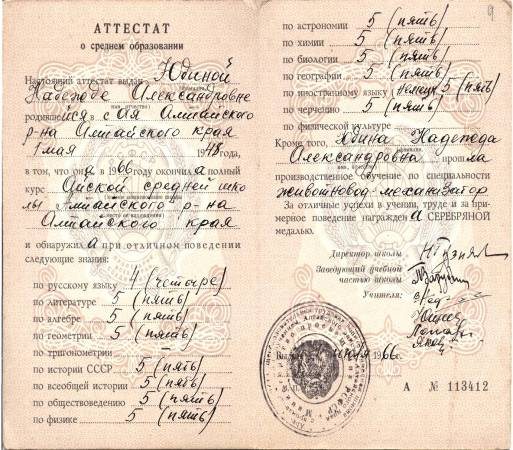 АТТЕСТАТ
о среднем образовании
Настоящий аттестат выдан Юдиной
Надежде Александровне
родившейся в с. Ая Алтайского
р-на Алтайского края
1 мая 1948 года,
в том, что она в 1966 году окончила полный
курс Айской средней шко
лы Алтайского р-на
Алтайского края
и обнаружила при отличном поведении
следующие знания:
по русскому языку 4 (четыре)
по литературе 5 (пять)
по алгебре 5 (пять)
по геометрии 5 (пять)
по тригонометрии
по истории СССР 5 (пять)
по всеобщей истории 5 (пять)
по обществоведению 5 (пять)
по физике 5 (пять)
9
по астрономии 5 (пять)
по химии 5 (пять)
по биологии 5 (пять)
по географии 5 (пять)
по иностранному языку (немецк) 5 (пять)
по черчению 5 (пять)
по физической культуре
Кроме того, Юдина Надежда
Александровна прошла
производственное обучение по специальности
животновод-механизатор
За отличные успехи в учении, труде и за при-
мерное поведение награжден а СЕРЕБРЯНОЙ
медалью.
Директор школы
Заведующий учебной
частью школы
Учителя:
1966 г.
А № 113412